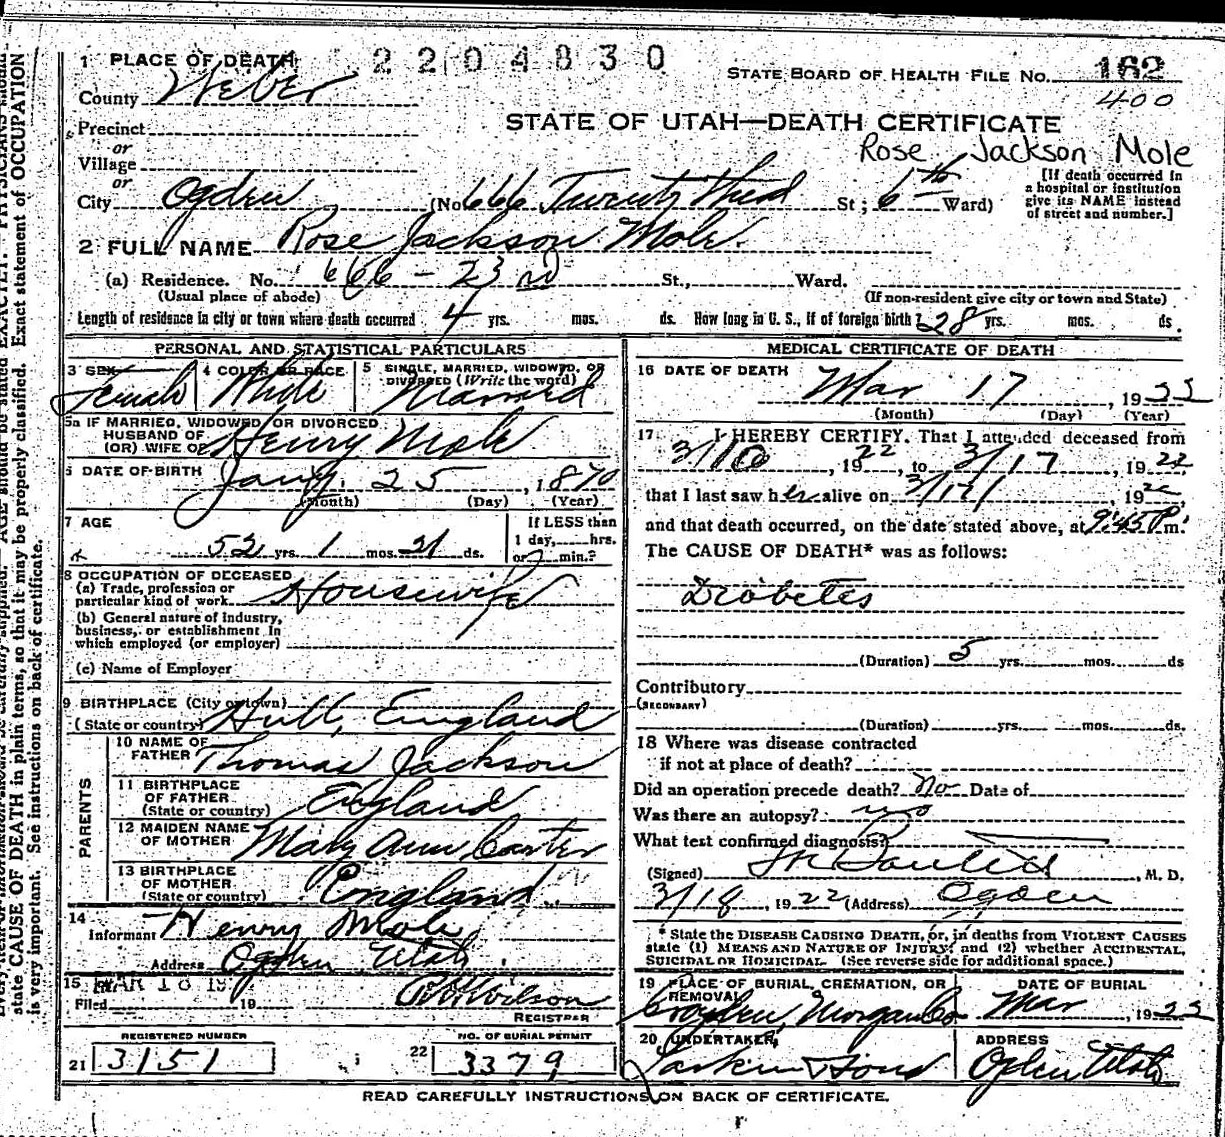 1 PLACE OF DEATH 2204830
STATE BOARD OF HEALTH FILE NO. 162
County Weber
400
Precinct
STATE OF UTAH—DEATH CERTIFICATE
or
Village
Rose Jackson Mole
or
City Ogden (No. 666 Twenty Third St; 6th Ward)
[If death occurred in
a hospital or institution
give its NAME instead
of street and number.]
2 FULL NAME Rose Jackson Mole.
(a) Residence. No. 666 - 23rd St., Ward.
(Usual place of abode) (If non-resident give city or town and State)
Length of residence in city or town where death occurred 4 yrs. mos. ds. How long in U. S., if of foreign birth? 28 yrs. mos. ds.
PERSONAL AND STATISTICAL PARTICULARS
3 SEX 4 COLOR OR RACE 5 SINGLE, MARRIED, WIDOWED, OR
DIVORCED (Write the word)
Female White Married
5a IF MARRIED, WIDOWED, OR DIVORCED
HUSBAND OF
(OR) WIFE OF Henry Mole
6 DATE OF BIRTH Jany. 25, 1870
(Month) (Day) (Year)
7 AGE
If LESS than
1 day, hrs.
52 yrs. 1 mos. 21 ds. or min.?
8 OCCUPATION OF DECEASED
(a) Trade, profession or
particular kind of work Housewife
(b) General nature of industry,
business, or establishment in
which employed (or employer)
(c) Name of Employer
9 BIRTHPLACE (City or town)
(State or country) Hull, England
PARENTS
10 NAME OF
FATHER Thomas Jackson
11 BIRTHPLACE
OF FATHER
(State or country) England
12 MAIDEN NAME
OF MOTHER Mary Ann Carter
13 BIRTHPLACE
OF MOTHER
(State or country) England
14
Informant Henry Mole
Address Ogden Utah
15 MAR 18 19
Filed 19 Wilson
REGISTRAR
REGISTERED NUMBER NO. OF BURIAL PERMIT
21 3151 22 3379
MEDICAL CERTIFICATE OF DEATH
16 DATE OF DEATH
Mar 17, 1922
(Month) (Day) (Year)
17 I HEREBY CERTIFY. That I attended deceased from
3/10, 1922, to 3/17, 1922
that I last saw her alive on 3/17/, 1922
and that death occurred, on the date stated above, at 9:45 P m.
The CAUSE OF DEATH* was as follows:
Diabetes
(Duration) 5 yrs. mos. ds
Contributory
(SECONDARY)
(Duration) yrs. mos. ds.
18 Where was disease contracted
if not at place of death?
Did an operation precede death? No Date of
Was there an autopsy? no
What test confirmed diagnosis?
(Signed) , M. D.
3/18, 1922 (Address) Ogden
* State the DISEASE CAUSING DEATH, or, in deaths from VIOLENT CAUSES
state (1) MEANS AND NATURE OF INJURY; and (2) whether ACCIDENTAL,
SUICIDAL OR HOMICIDAL. (See reverse side for additional space.)
19 PLACE OF BURIAL, CREMATION, OR
REMOVAL
DATE OF BURIAL
Croyden, Morgan Co Mar, 1922
20 UNDERTAKER, ADDRESS
Larkin & Sons Ogden Utah
READ CAREFULLY INSTRUCTIONS ON BACK OF CERTIFICATE.
state CAUSE OF DEATH in plain terms, so that it may be properly classified. Exact statement of OCCUPATION
is very important. See instructions on back of certificate.